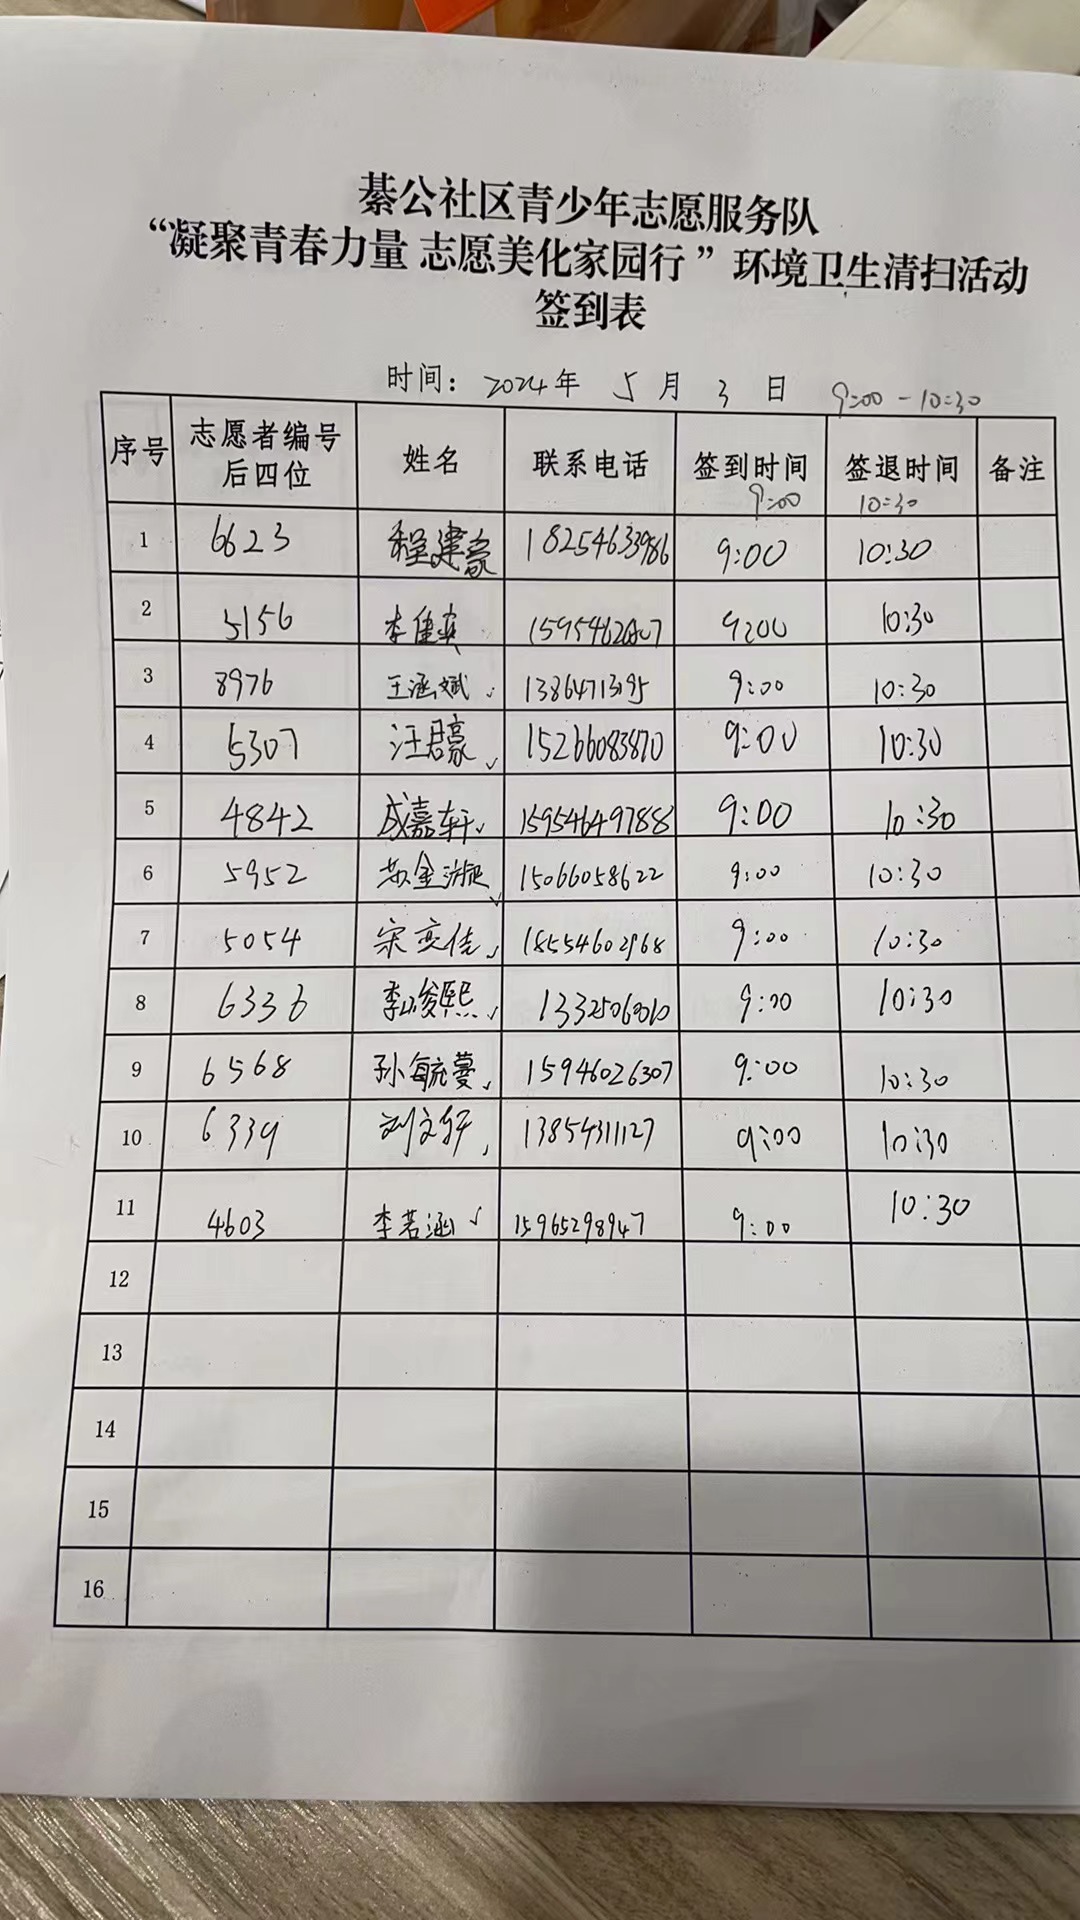 綦公社区青少年志愿服务队
“凝聚青春力量 志愿美化家园行 ”环境卫生清扫活动
签到表
时间: 2024年 5 月 3 日 9:00 - 10:30
序号 志愿者编号后四位 姓名 联系电话 签到时间 9:00 签退时间 10:30 备注
1 6623 程建豪 18254633986 9:00 10:30
2 5156 李佳爽 9:00 10:30
3 8976 王涵斌 13864713195 9:00 10:30
4 5307 汪君豪 15266083870 9:00 10:30
5 4842 成嘉轩 159546497888 9:00 10:30
6 5952 苏金淑 15066058622 9:00 10:30
7 5054 宋奕佳 18554602968 9:00 10:30
8 6336 李峻熙 9:00 10:30
9 6568 孙毓蔓 15946026307 9:00 10:30
10 6339 刘文轩 13854311127 9:00 10:30
11 4603 李若涵 15965298947 9:00 10:30
12
13
14
15
16